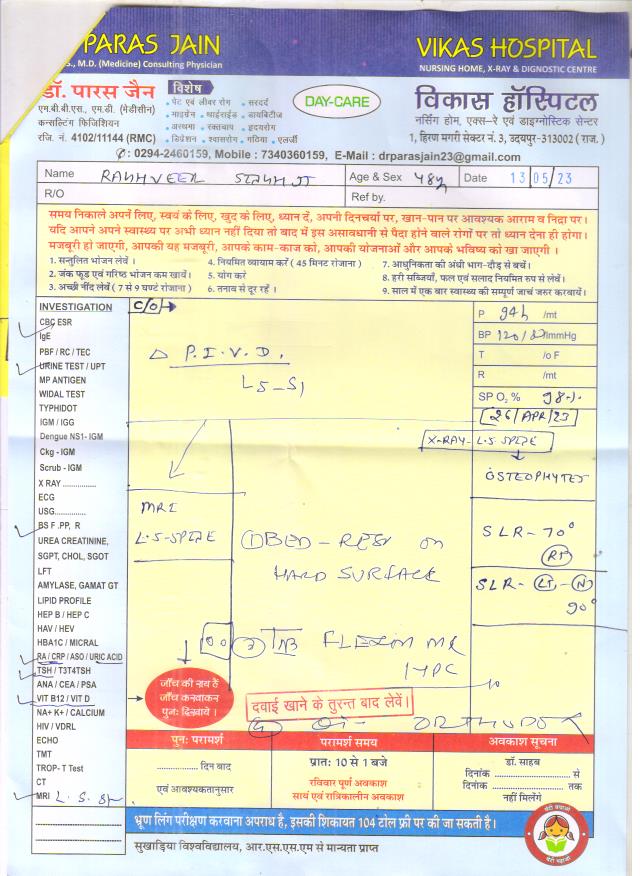 PARAS JAIN
S., M.D. (Medicine) Consulting Physician
VIKAS HOSPITAL
NURSING HOME, X-RAY & DIGNOSTIC CENTRE
डॉ. पारस जैन
एम.बी.बी.एस., एम.डी. (मेडीसीन)
कन्सल्टिंग फिजिशियन
रजि. नं. 4102/11144 (RMC)
विशेष
• पेट एवं लीवर रोग • सरदर्द
• माइग्रेन • थाईराईड • डायबिटीज
• अस्थमा • रक्तचाप • हृदयरोग
• डिप्रेशन • श्वासरोग • गठिया • एलर्जी
DAY-CARE
विकास हॉस्पिटल
नर्सिंग होम, एक्स-रे एवं डाइग्नोस्टिक सेन्टर
1, हिरण मगरी सेक्टर नं. 3, उदयपुर-313002 ( राज. )
✆: 0294-2460159, Mobile : 7340360159, E-Mail : drparasjain23@gmail.com
Name
Age & Sex 48y
Date 13/05/23
R/O
Ref by.
समय निकाले अपनें लिए, स्वयं के लिए, खुद के लिए, ध्यान दें, अपनी दिनचर्या पर, खान-पान पर आवश्यक आराम व निद्रा पर।
यदि आपने अपने स्वास्थ्य पर अभी ध्यान नहीं दिया तो बाद में इस असावधानी से पैदा होने वाले रोगों पर तो ध्यान देना ही होगा।
मजबूरी हो जाएगी, आपकी यह मजबूरी, आपके काम-काज को, आपकी योजनाओं और आपके भविष्य को खा जाएगी ।
1. सन्तुलित भोजन लेवें ।
4. नियमित व्यायाम करें ( 45 मिनट रोजाना )
7. आधुनिकता की अंधी भाग-दौड़ से बचें।
2. जंक फूड एवं गरिष्ठ भोजन कम खायें।
5. योग करें
8. हरी सब्जियाँ, फल एवं सलाद नियमित रुप से लेवें।
3. अच्छी नींद लेवें ( 7 से 9 घण्टे रोजाना )
6. तनाव से दूर रहें ।
9. साल में एक बार स्वास्थ्य की सम्पूर्ण जाचं जरुर करवायें।
INVESTIGATION
CBC ESR
IgE
PBF / RC / TEC
URINE TEST / UPT
MP ANTIGEN
WIDAL TEST
TYPHIDOT
IGM / IGG
Dengue NS1- IGM
Ckg - IGM
Scrub - IGM
X RAY ................
ECG
USG................
BS F .PP, R
UREA CREATININE,
SGPT, CHOL, SGOT
LFT
AMYLASE, GAMAT GT
LIPID PROFILE
HEP B / HEP C
HAV / HEV
HBA1C / MICRAL
RA / CRP / ASO / URIC ACID
TSH / T3T4TSH
ANA / CEA / PSA
VIT B12 / VIT D
NA+ K+ / CALCIUM
HIV / VDRL
ECHO
TMT
TROP- T Test
CT
MRI L. S.
C/O
△ P.I.V.D.
L5-S1
MRI
L.S-SPINE
① BED-REST on
HARD SURFACE
P 94 /mt
BP 120/ mmHg
T /o F
R /mt
SP O₂ % 98%
26/APR/23
X-RAY-L.S SPINE
OSTEOPHYTES
SLR-70°
RT
SLR- LT - N
90°
② FLEXON MR
जाँच की राय दें
जाँच करवाकर
पुनः दिखावे ।
दवाई खाने के तुरन्त बाद लेवें।
पुनः परामर्श
.................. दिन बाद
एवं आवश्यकतानुसार
परामर्श समय
प्रात: 10 से 1 बजे
रविवार पूर्ण अवकाश
सायं एवं रात्रिकालीन अवकाश
अवकाश सूचना
डॉ. साहब
दिनांक .................. से
दिनांक .................. तक
नहीं मिलेंगे
भ्रूण लिंग परीक्षण करवाना अपराध है, इसकी शिकायत 104 टोल फ्री पर की जा सकती है।
सुखाड़िया विश्वविद्यालय, आर.एस.एस.एम से मान्यता प्राप्त
बेटी बचाओ
बेटी पढ़ाओ